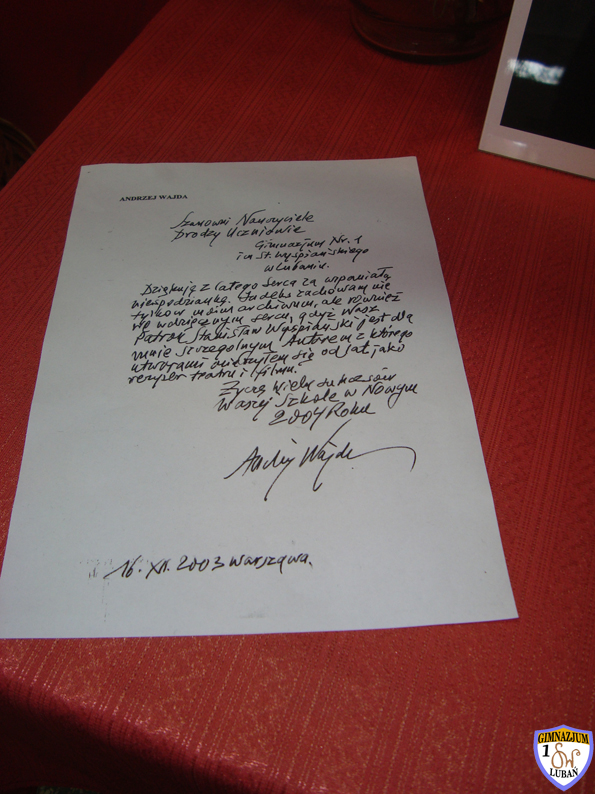 ANDRZEJ WAJDA
Szanowni Nauczyciele
Drodzy Uczniowie
Gimnazjum Nr. 1
im St. Wyspiańskiego
w Lubaniu.
Dziękuję z całego serca za wspaniałą
niespodziankę. zachowam nie
tylko w moim archiwum, ale również
we wdzięcznym sercu, gdyż Wasz
Patron Stanisław Wyspiański jest dla
mnie szczególnym Autorem z którego
utworami mierzyłem się od lat jako
reżyser teatru i filmu.
Życzę wielu sukcesów
Waszej Szkole w Nowym
2004 Roku
Andrzej Wajda
16. XII. 2003 Warszawa.
GIMNAZJUM
1 SW
LUBAŃ